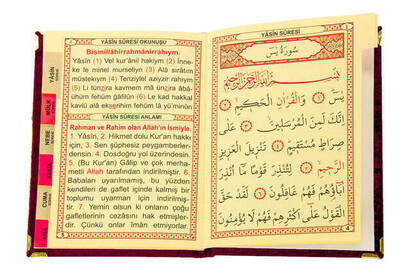 YÂSÎN SÛRESİ OKUNUŞU
Bismillâhirrahmânirrahıym.
Yâsîn (1) Vel kur'ânil hakiym (2) İnne-
ke le minel murseliyn (3) Alâ sırâtım
müstekıym (4) Tenziylel aziyzir rahiym
(5) Li tünzira kavmem mâ ünzira âbâ-
ühüm fehüm ğâfilûn (6) Le kad hakkal
kavlü alâ ekserihim fehüm lâ yü'minûn
YÂSÎN SÛRESİ ANLAMI
Rahman ve Rahim olan Allah'ın İsmiyle.
1. Yâsîn, 2. Hikmet dolu Kur'an hakkı
için, 3. Sen şüphesiz peygamberler-
densin. 4. Dosdoğru yol üzerindesin.
5. (Bu Kur'an) Gâlip ve çok merha-
metli Allah tarafından indirilmiştir. 6.
Babaları uyarılmamış, bu yüzden
kendileri de gaflet içinde kalmış bir
toplumu uyarman için indirilmiş-
tir. 7. Yemin olsun ki onların çoğu
gafletlerinin cezâsını hak etmişler-
dir. Çünkü onlar îmân etmiyorlar.
YÂSÎN
MÜLK
NEBE
CUMA
YÂSÎN SÛRESİ
سُورَةُ يٰسٓ
بِسْمِ اللّٰهِ الرَّحْمٰنِ الرَّحِيمِ
يٰسٓ ﴿١﴾ وَالْقُرْاٰنِ الْحَكِيمِ ﴿٢﴾
اِنَّكَ لَمِنَ الْمُرْسَلِينَ ﴿٣﴾ عَلٰى
صِرَاطٍ مُسْتَقِيمٍ ﴿٤﴾ تَنْزِيلَ الْعَزِيزِ
الرَّحِيمِ ﴿٥﴾ لِتُنْذِرَ قَوْمًا مَٓا اُنْذِرَ
اٰبَٓاؤُهُمْ فَهُمْ غَافِلُونَ ﴿٦﴾ لَقَدْ حَقَّ
الْقَوْلُ عَلٰٓى اَكْثَرِهِمْ فَهُمْ لَا يُؤْمِنُونَ